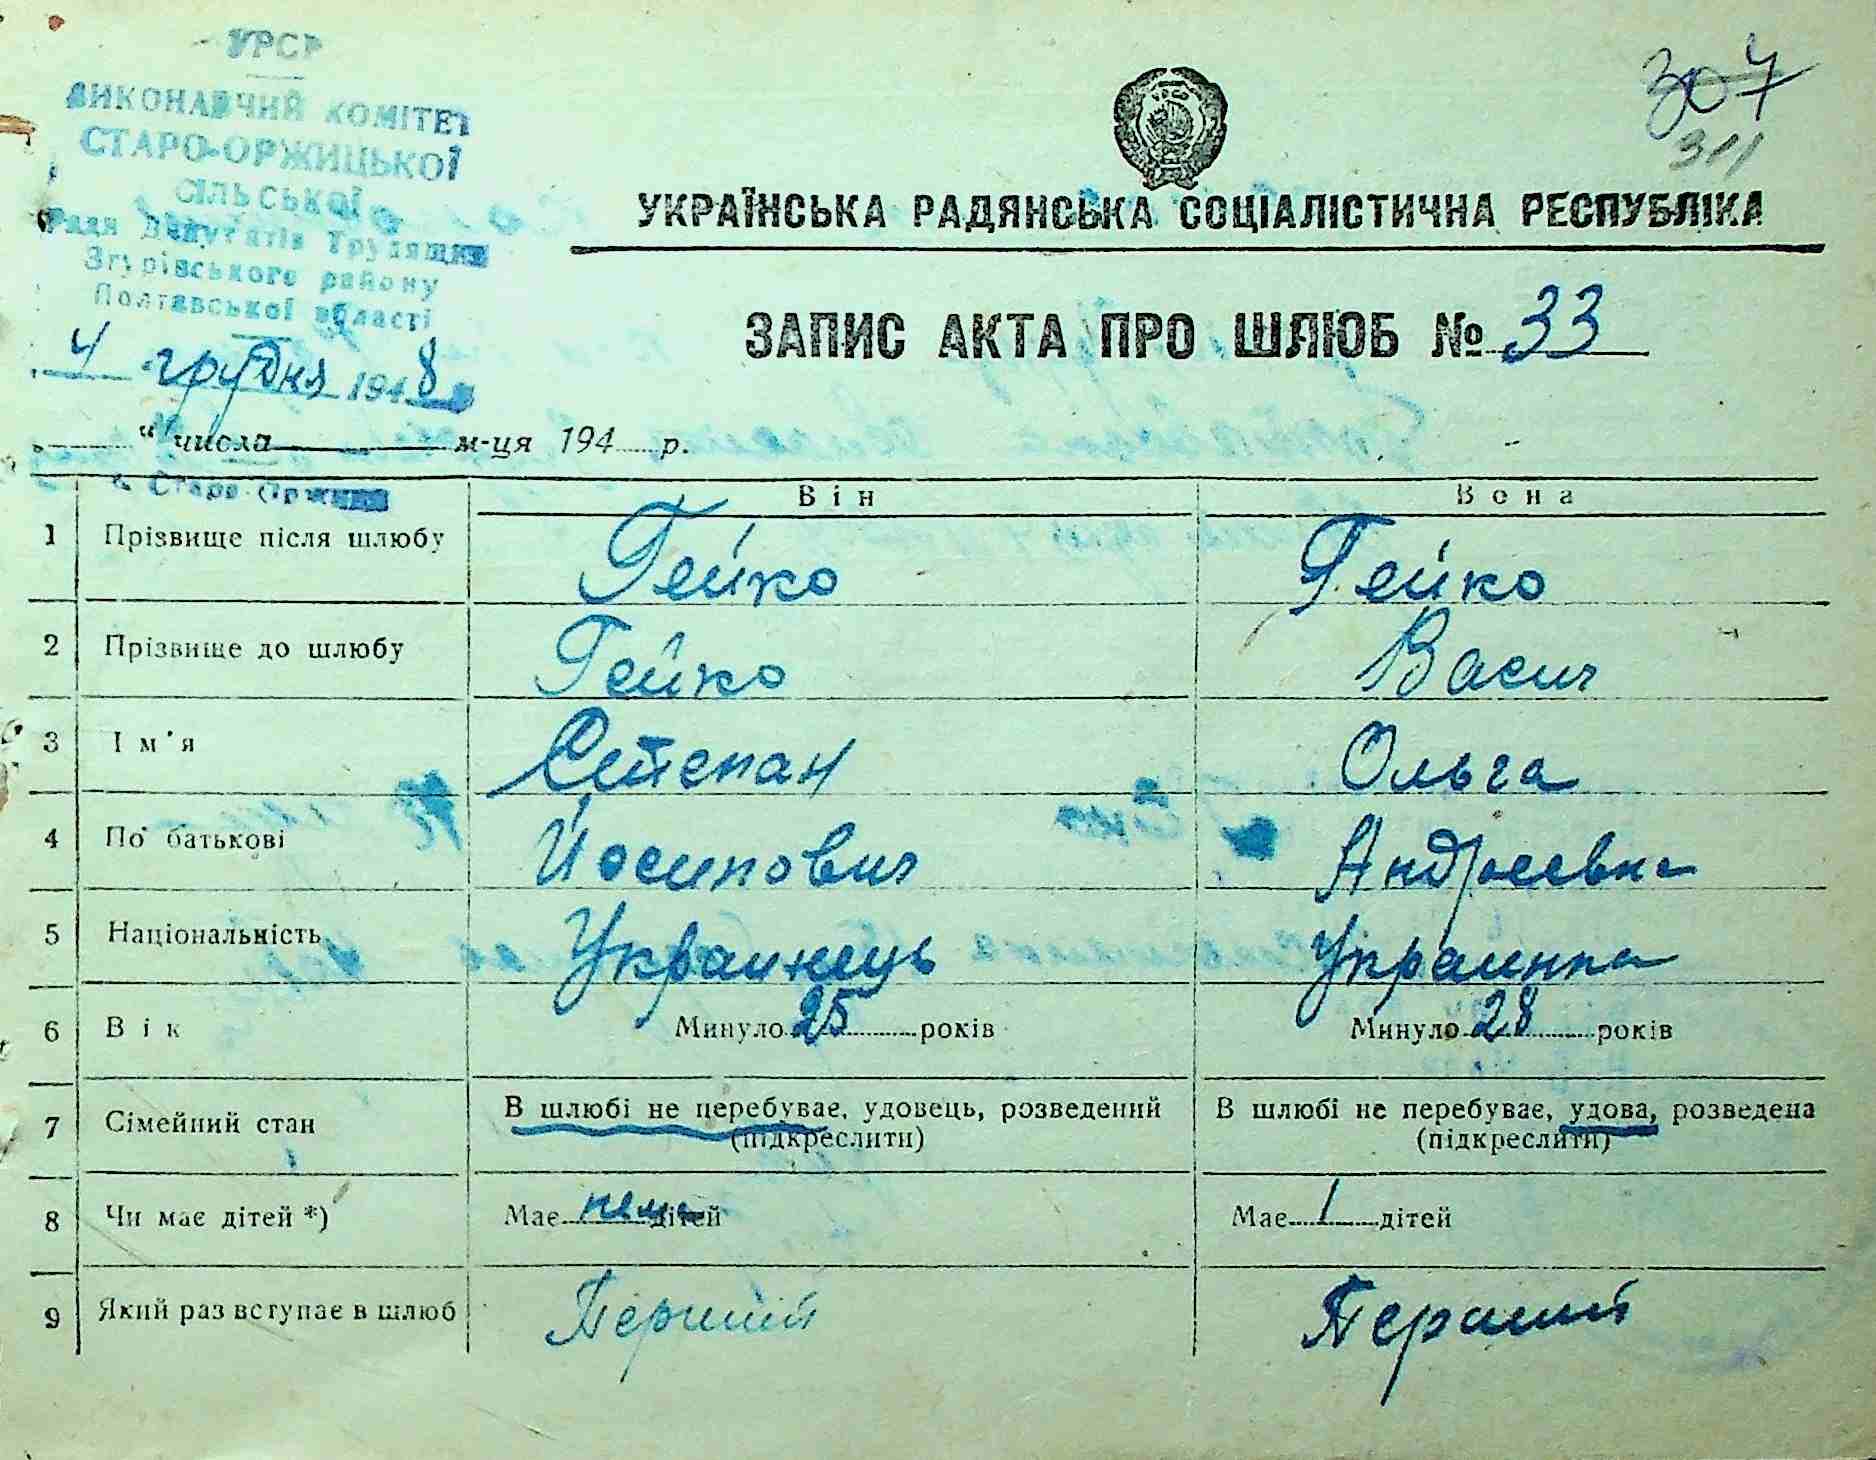 УРСР
ВИКОНАВЧИЙ КОМІТЕТ
СТАРО-ОРЖИЦЬКОЇ
СІЛЬСЬКОЇ
Ради Депутатів Трудящих
Згурівського району
Полтавської області
4 грудня 1948
307
311
УКРАЇНСЬКА РАДЯНСЬКА СОЦІАЛІСТИЧНА РЕСПУБЛІКА
ЗАПИС АКТА ПРО ШЛЮБ № 33
" числа м-ця 194 р.
с. Стара Оржиця
Він Вона
1 Прізвище після шлюбу Гейко Гейко
2 Прізвище до шлюбу Гейко Васич
3 Ім'я Стетепан Ольга
4 По батькові Йосипович Андреевна
5 Національність Украинець Украинка
6 Вік Минуло 25 років Минуло 28 років
7 Сімейний стан В шлюбі не перебуває, удовець, розведений В шлюбі не перебуває, удова, розведена
(підкреслити) (підкреслити)
8 Чи має дітей *) Має нема дітей Має 1 дітей
9 Який раз вступає в шлюб Перший Перший